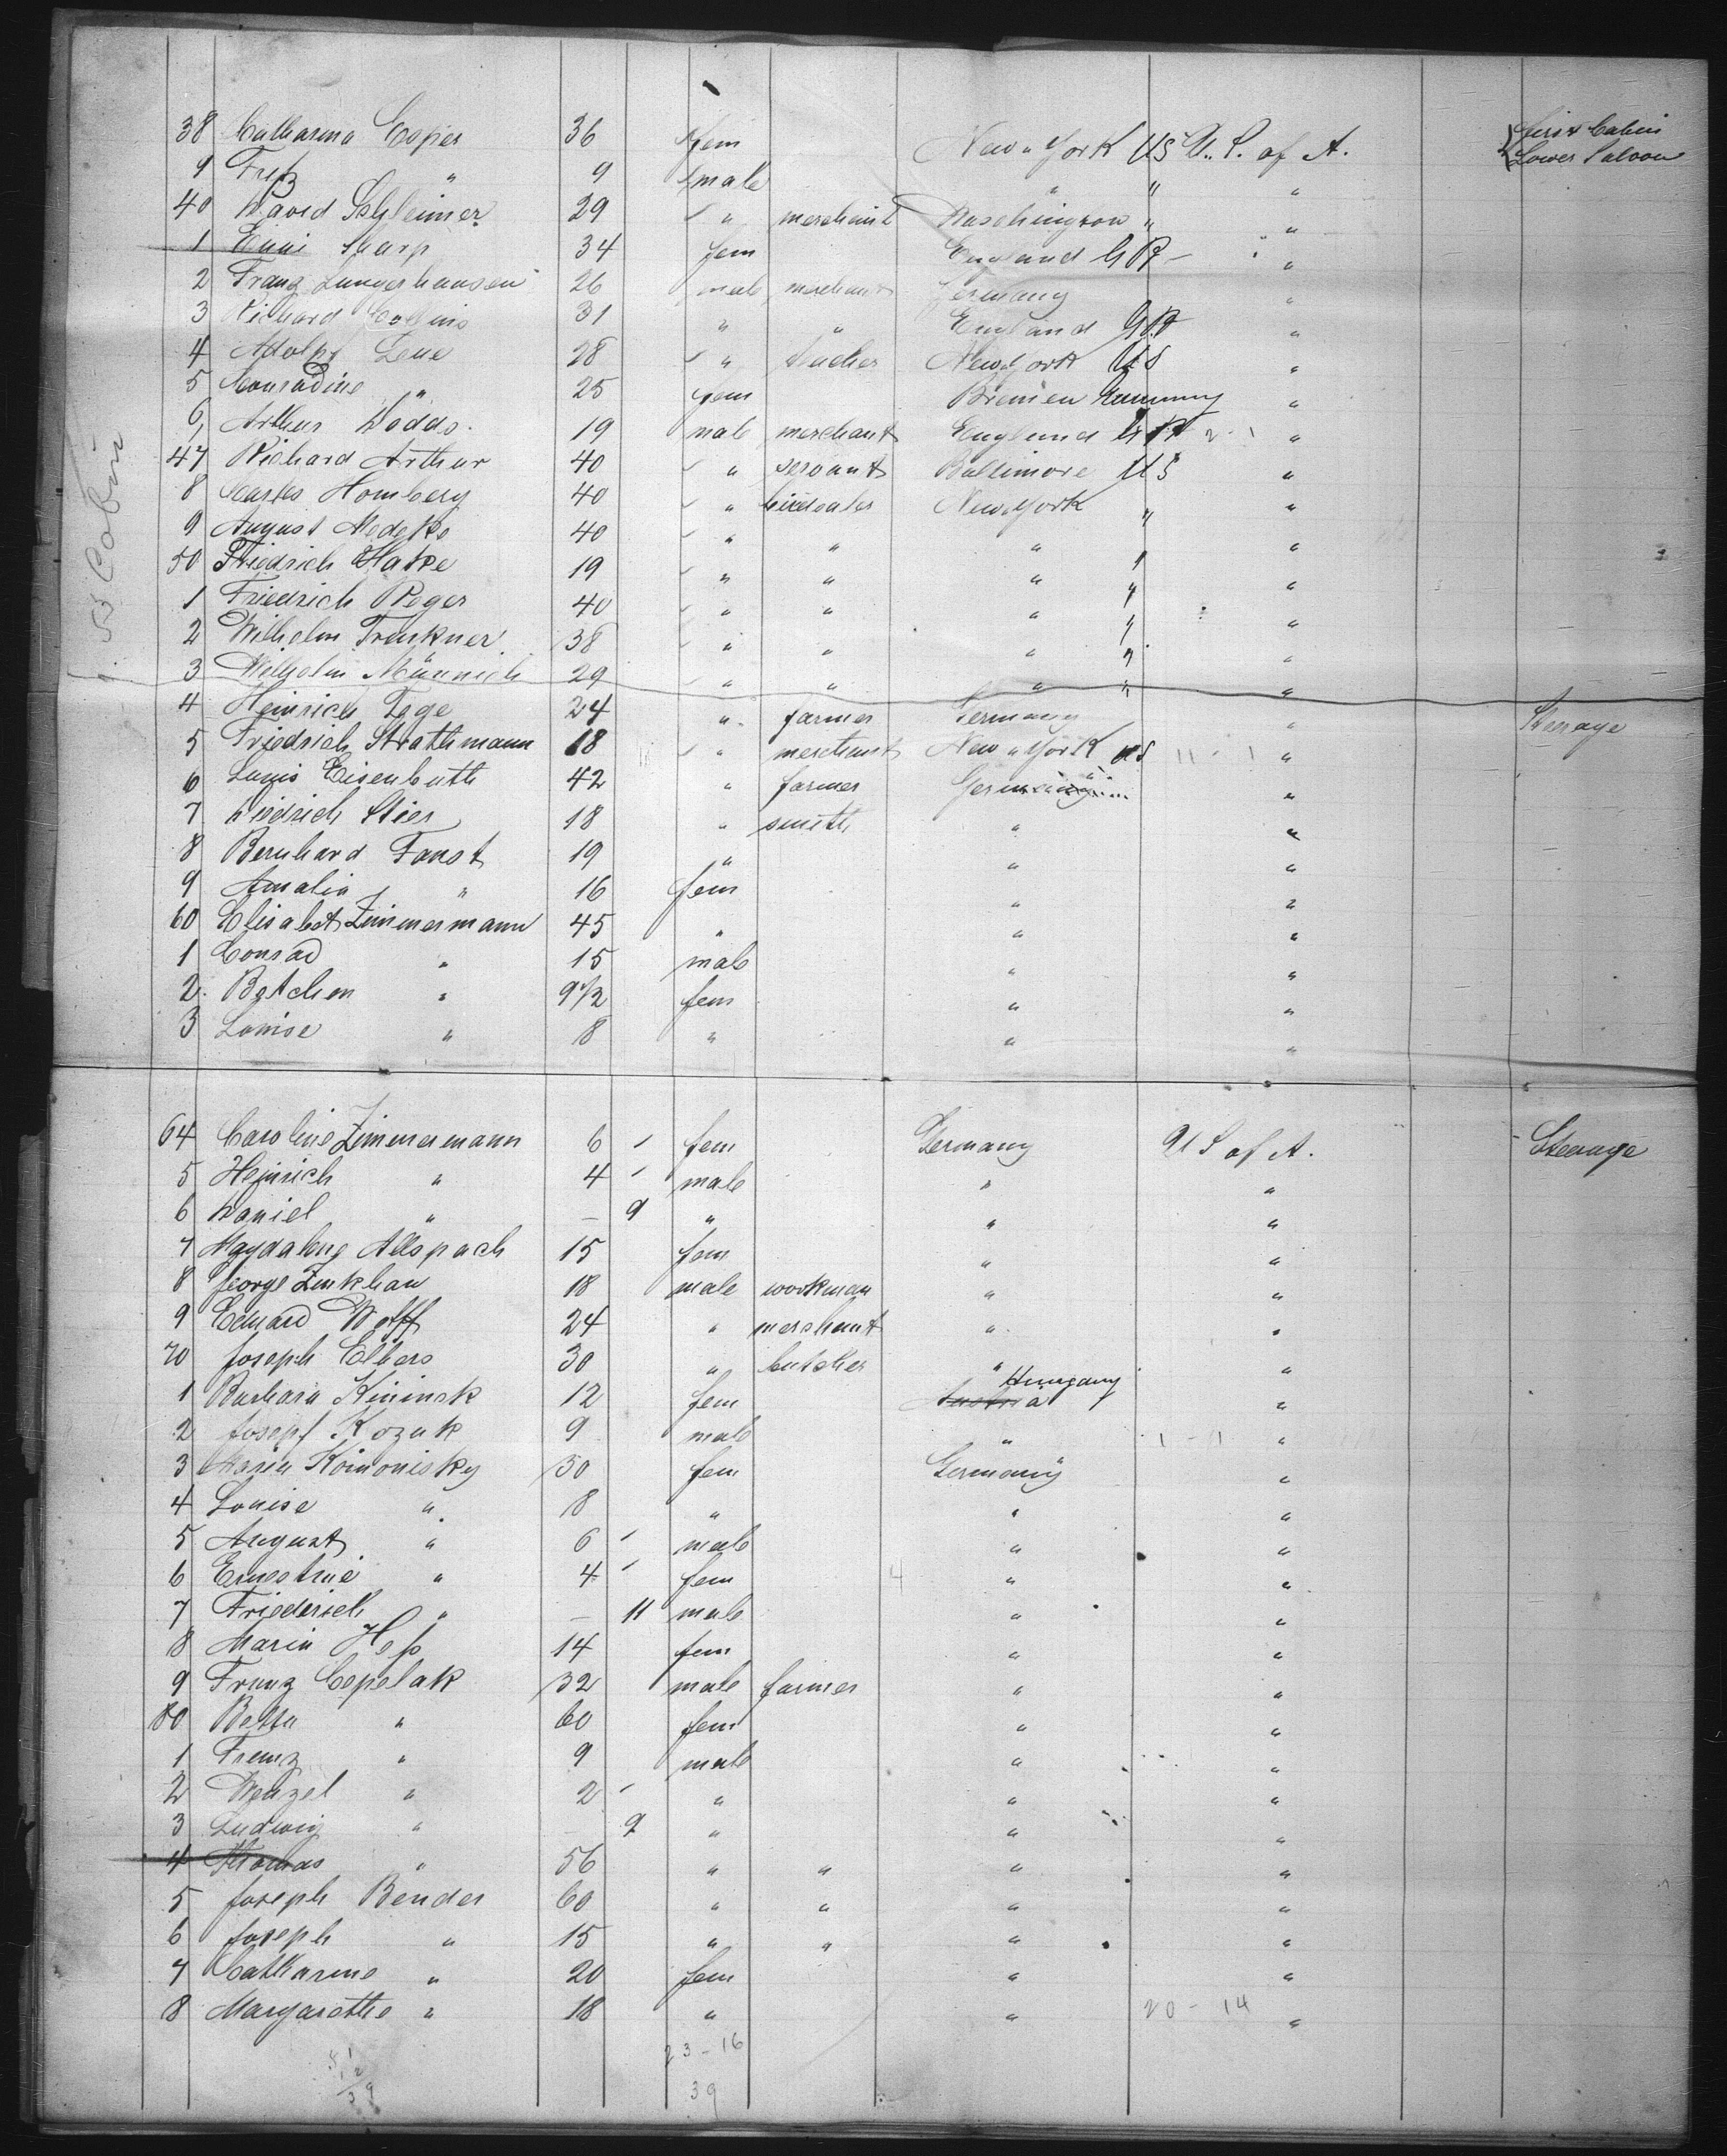 38 Catharina Copier 36 fem New York US U. S. of A. First Cabin
9 Fritz " 9 male " " " Lower Saloon
40 David Schleimer 29 " merchant Waschington " "
1 Emi Sharp 34 fem England GB "
2 Franz Lungershausen 26 male merchant Germany "
3 Richard Collins 31 " " England GB "
4 Adolph Leue 28 " teacher New York US "
5 Conradine " 25 fem Bremen Germany "
6 Arthur Dodds 19 male merchant England GB 2 - 1 "
47 Richard Arthur 40 " servant Baltimore US "
8 Carles Homberg 40 " New York " "
9 August Medeke 40 " " " "
50 Friedrich Hatke 19 " " " " "
1 Friedrich Reger 40 " " " " "
2 Wilhelm Truckner 38 " " " " "
3 Wilhelm Männich 29 " " " " "
4 Heinrich Tege 24 " farmer Germany " Steerage
5 Friedrich Strathmann 18 " merchant New York US 11 - 1 "
6 Louis Eisenbuth 42 " farmer Germany "
7 Diedrich Stier 18 " smith " "
8 Bernhard Faust 19 " " "
9 Amalia " 16 fem " "
60 Elisabet Zimmermann 45 " " "
1 Conrad " 15 male " "
2 Betchen " 9 1/2 fem " "
3 Louise " 8 " " "
1st Cabin
64 Caroline Zimmermann 6 fem Germany U S of A. Steerage
5 Heinrich " 4 male " "
6 Daniel " - 9 " " "
7 Magdalena Allspach 15 fem " "
8 George Zinkhan 18 male workman " "
9 Eduard Wolff 24 " merchant " "
70 Joseph Elbers 30 " butcher " "
1 Barbara Kininsk 12 fem Austria Hungary "
2 Josepf Kozak 9 male " 1 - 1 "
3 Maria Komonisky 30 fem Germany "
4 Louise " 8 " " "
5 August " 6 male " "
6 Ernestine " 4 fem 4 " "
7 Friederich " - 11 male " "
8 Maria Heß 14 fem " "
9 Franz Cepelak 32 male farmer " "
80 Betta " 60 fem " "
1 Franz " 9 male " "
2 Wenzel " 2 " " "
3 Ludwig " - 9 " " "
4 Thomas " 56 " " " "
5 Joseph Bender 60 " " " "
6 Joseph " 15 " " " "
7 Catharine " 20 fem " "
8 Margarethe " 18 " " 20 - 14 "
23 - 16
39